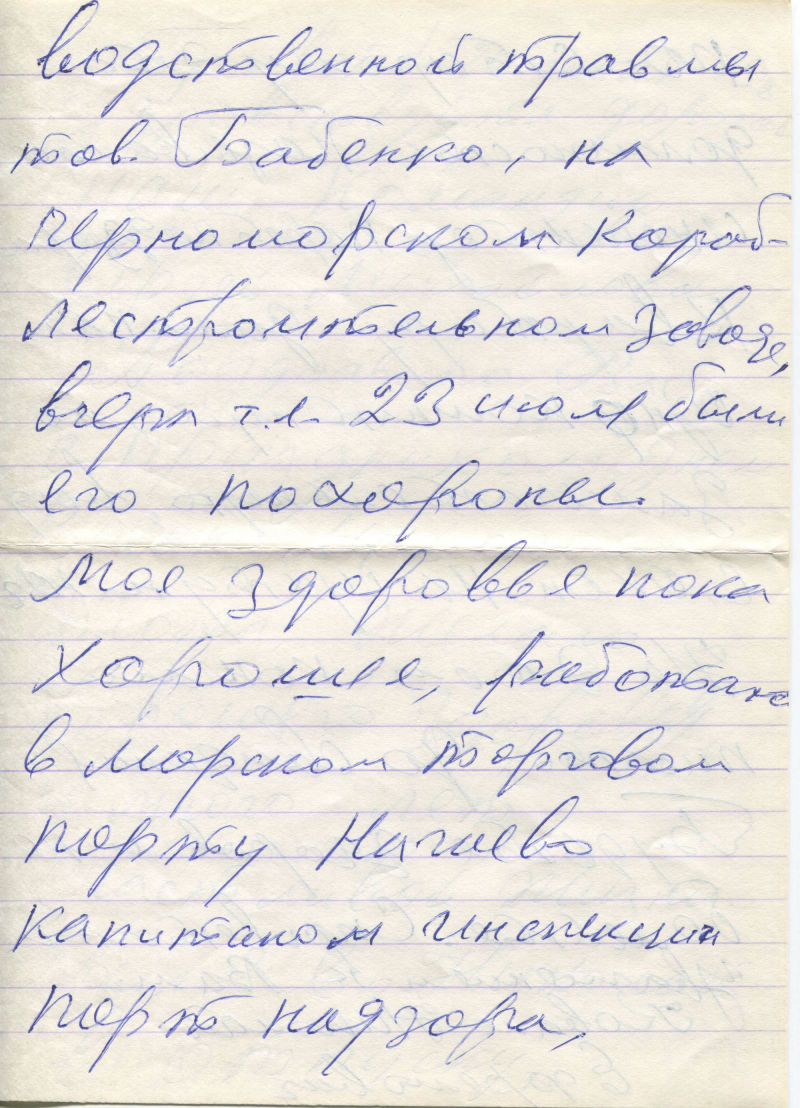 водственной травмы
тов. Бабенко, на
Черноморском Кораб-
лестроительном заводе,
вчера т.е. 23 июля были
его похороны.
Мое здоровье пока
хорошее, работаю
в морском торговом
порту Нагаево
капитаном инспекции
порт надзора,